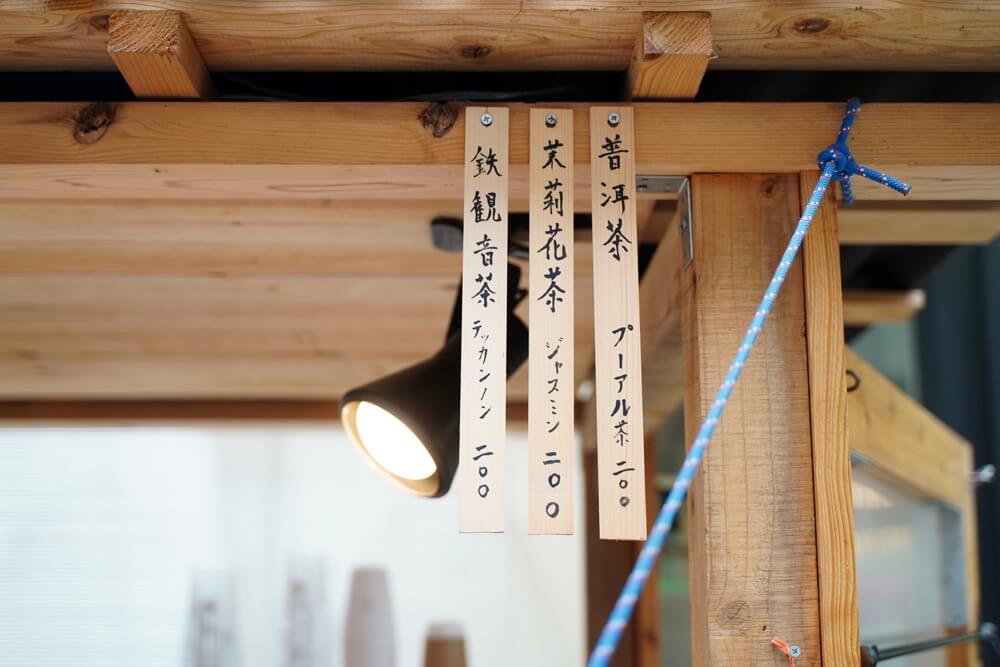 普洱茶 プーアル茶 二〇〇
茉莉花茶 ジャスミン 二〇〇
鉄観音茶 テッカンノン 二〇〇